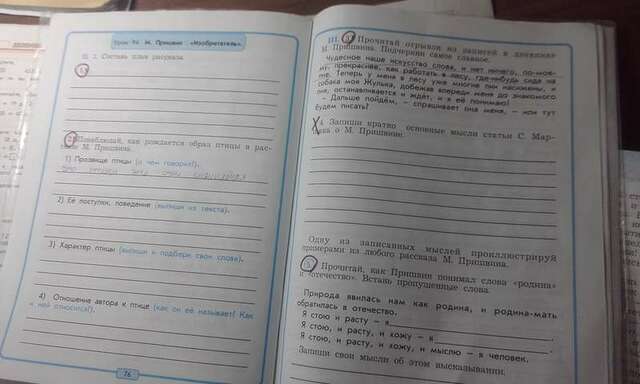 Урок 94. М. Пришвин. «Изобретатель».
III. 1. Составь план рассказа.
2. Понаблюдай, как рождается образ птицы в рас-
М. Пришвина.
1) Прозвище птицы (о чём говорит?).
2) Её поступки, поведение (выпиши из текста).
3) Характер птицы (выпиши и подбери свои слова).
4) Отношение автора к птице (как он её называет? Как
к ней относится?).
76
III. 3. Прочитай отрывки из записей в дневниках
М. Пришвина. Подчеркни самое главное.
Чудесное наше искусство слова, и нет ничего, по-мое-
му, прекраснее, как работать в лесу, где-нибудь сидя на
пне. Теперь у меня в лесу уже многие пни насижены, и
собака моя Жулька, добежав впереди меня до знакомого
пня, останавливается и ждёт, и я её понимаю!
– Дальше пойдём, – спрашивает она меня, – или тут
будем писать?
4. Запиши кратко основные мысли статьи С. Мар-
о М. Пришвине.
Одну из записанных мыслей проиллюстрируй
примерами из любого рассказа М. Пришвина.
5. Прочитай, как Пришвин понимал слова «родина»
и «отечество». Вставь пропущенные слова.
Природа явилась нам как родина, и родина-мать
обратилась в отечество.
Я стою и расту – я
Я стою, и расту, и хожу – я
Я стою, и расту, и хожу, и мыслю – я человек.
Запиши свои мысли об этом высказывании.